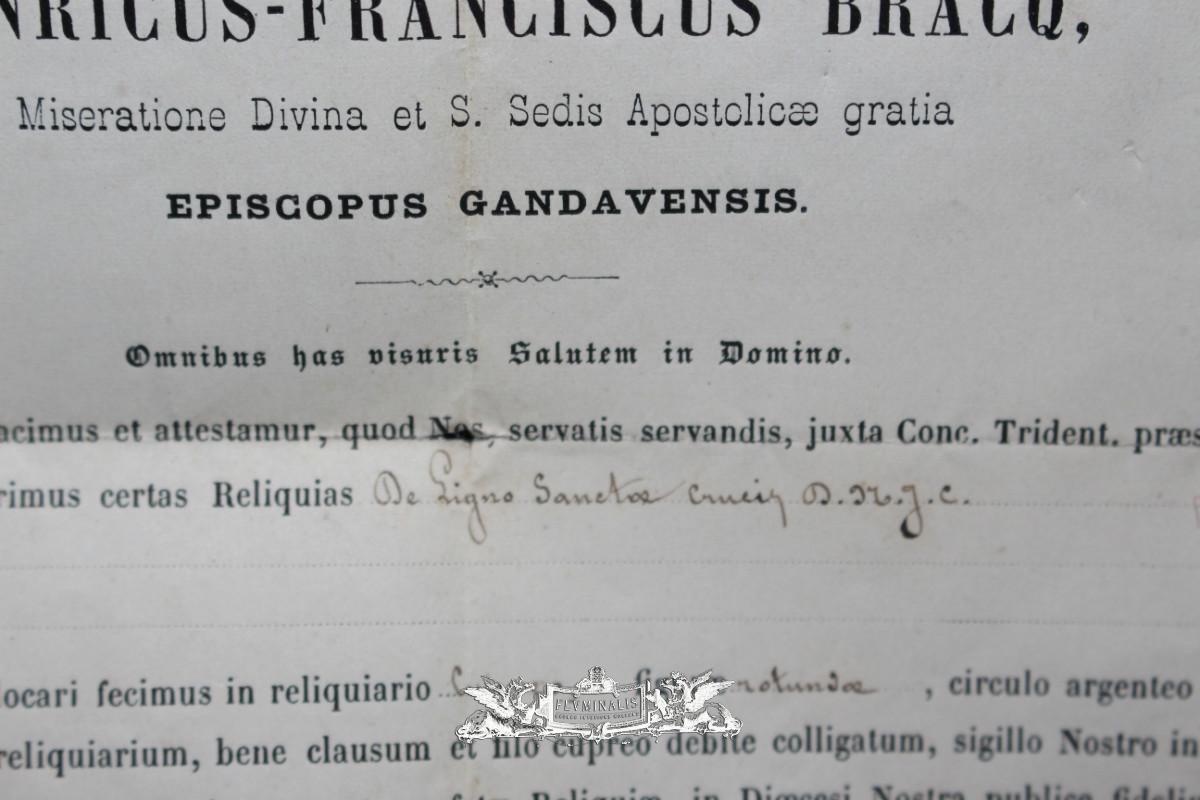 NRICUS-FRANCISCUS BRACQ,
Miseratione Divina et S. Sedis Apostolicæ gratia
EPISCOPUS GANDAVENSIS.
Omnibus has visuris Salutem in Domino.
acimus et attestamur, quod Nos, servatis servandis, juxta Conc. Trident. præs
rimus certas Reliquias De Ligno Sanctæ Crucis D.N.J.C.
locari fecimus in reliquiario rotundæ, circulo argenteo
FLVMINALIS
reliquiarium, bene clausum et filo cupreo debite colligatum, sigillo Nostro in
Reliquiæ, in Diœcesi Nostra publice fideli